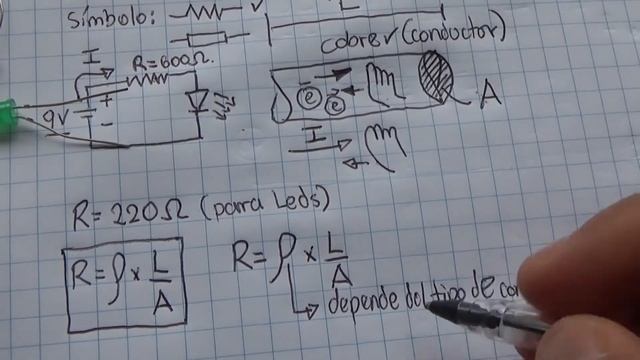 símbolo:
L
cobre (conductor)
I
R=600Ω.
+
9V
-
e
e
A
I
R= 220Ω (para Leds)
R= ρ x L/A
R= ρ x L/A
depende del tipo de